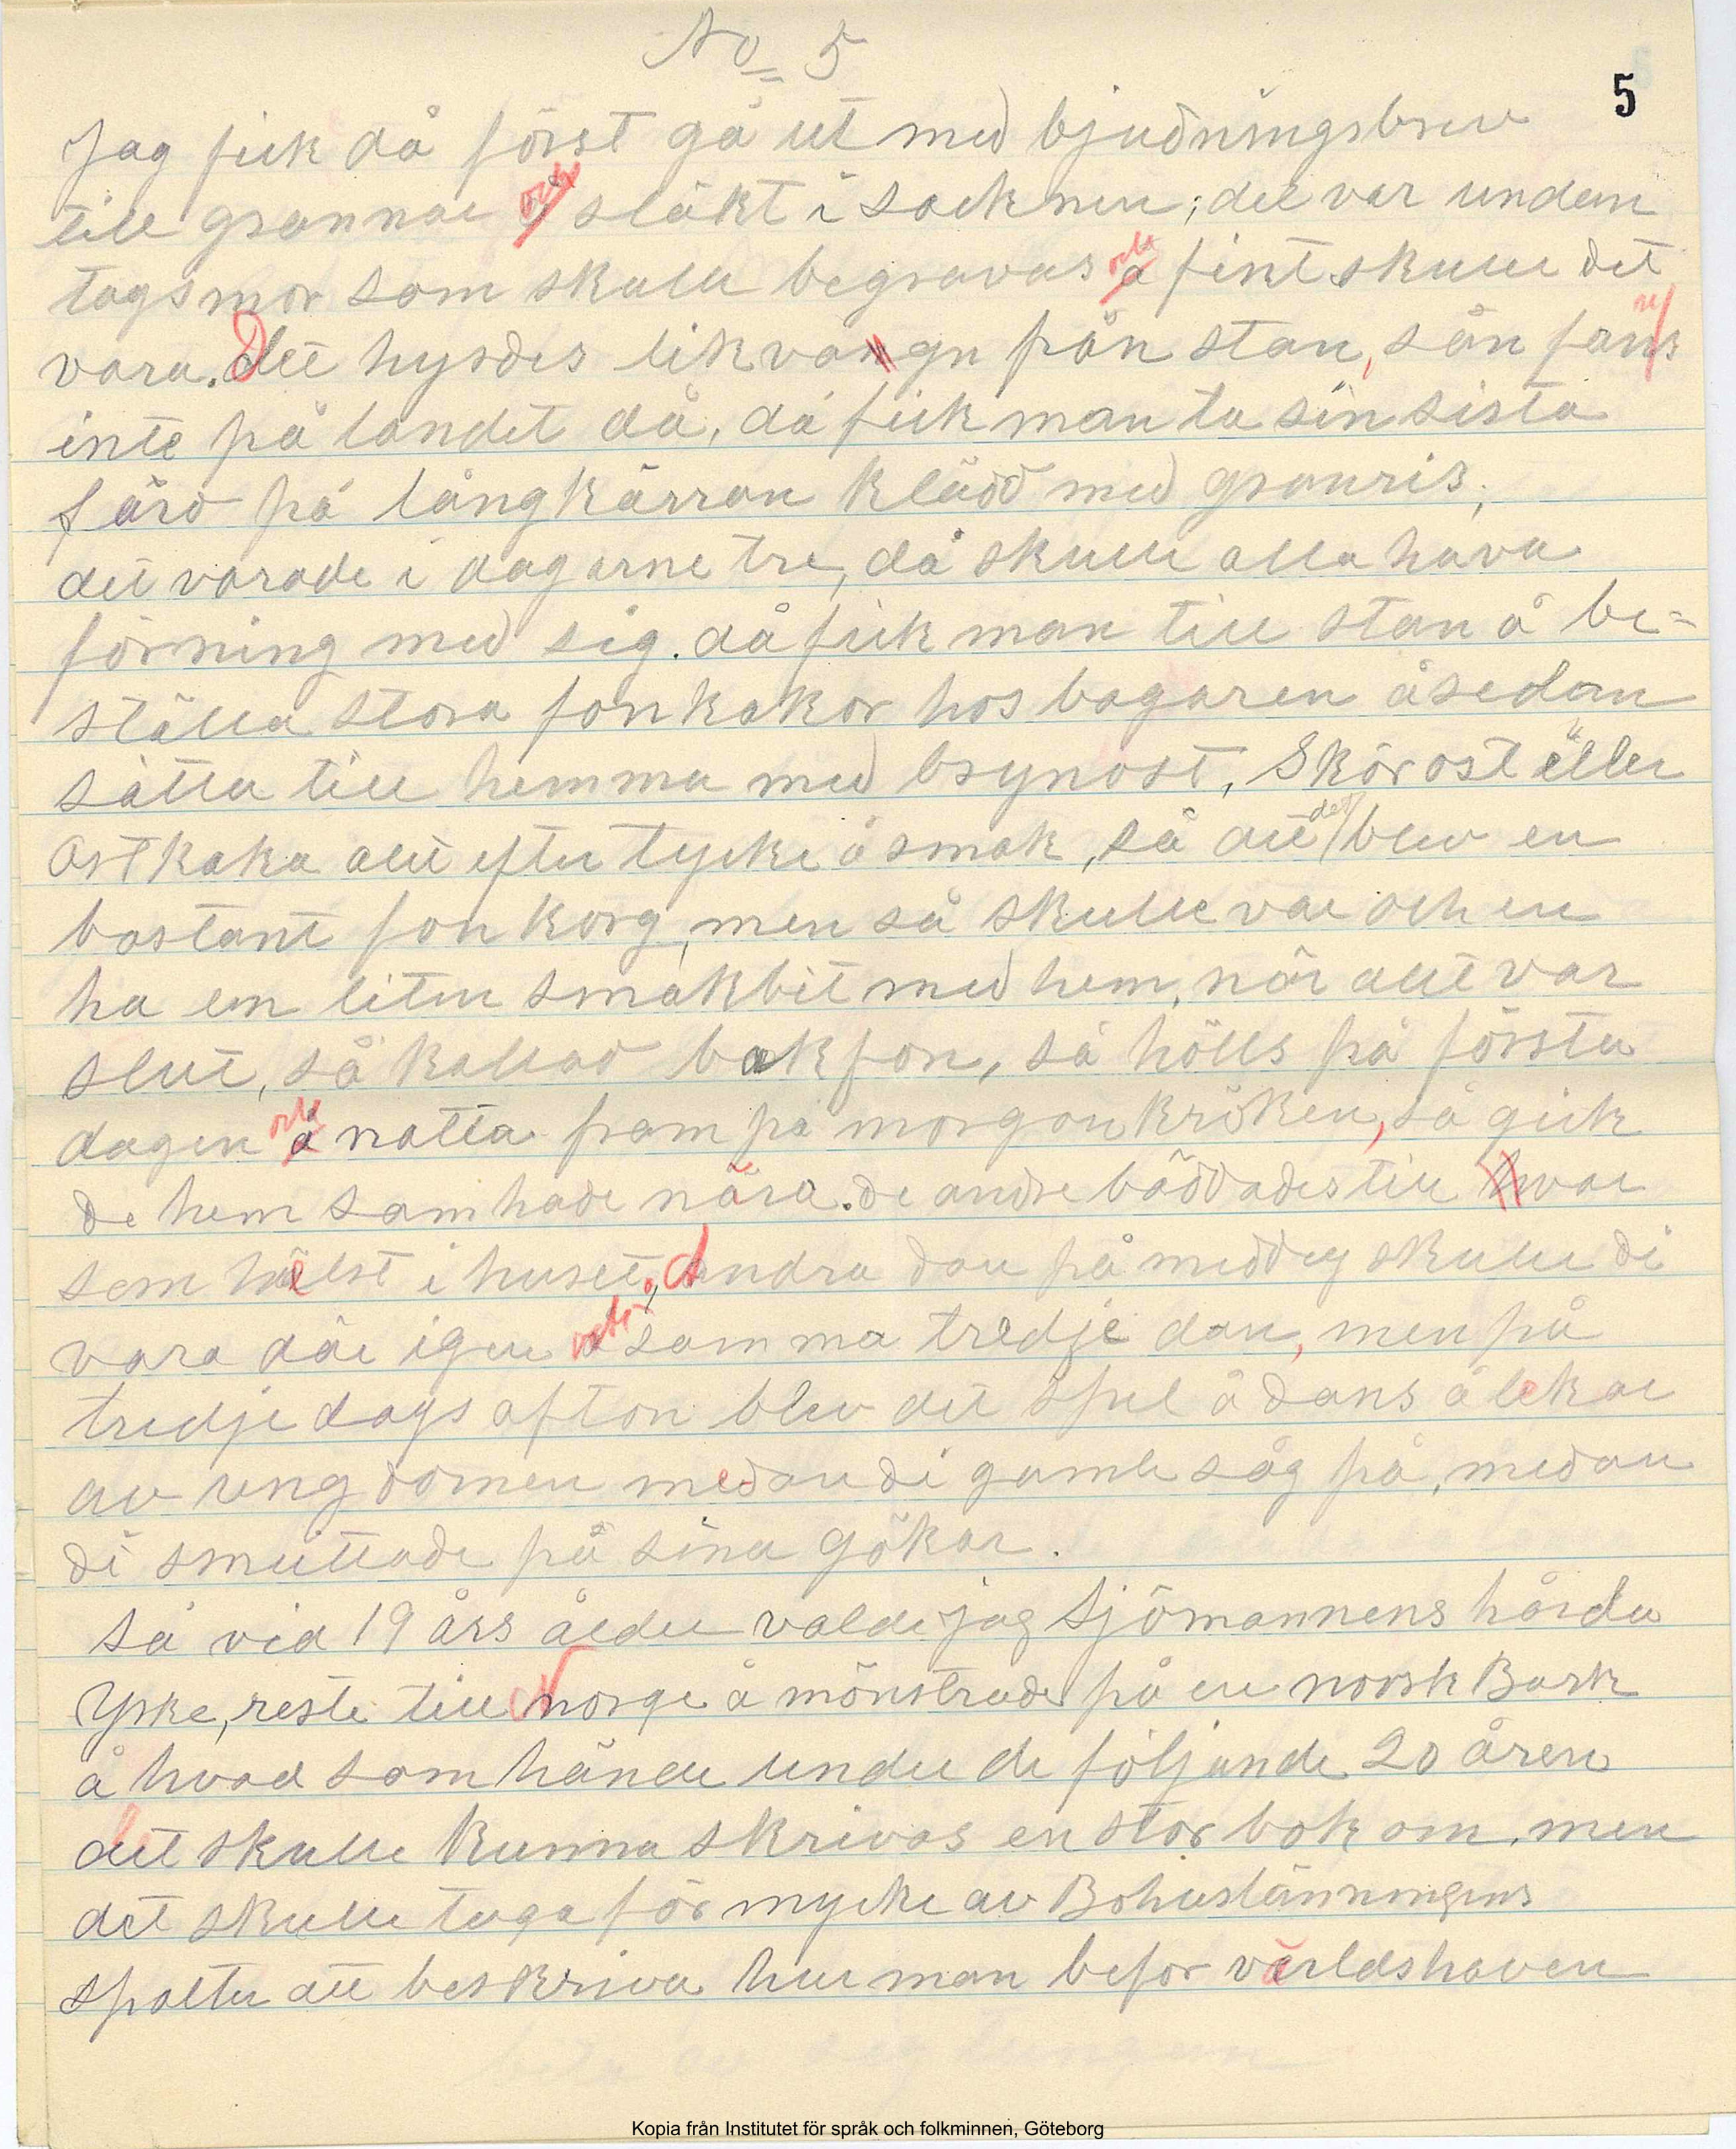 No 5
5
Jag fick då först gå ut med bjudningsbrev
till grannar och släkt i socknen; det var undan
tagsmor som skulle begravas och fint skulle det
vara. Det hyrdes likvagn från stan, sån fanns
inte på landet då, då fick man ta sin sista
färd på långkärran klädd med granris,
det varade i dagarne tre, då skulle alla hava
förning med sig. då fick man till stan å be=
ställa stora fonkakor hos bagaren å sedan
sätta till hemma med brynost, Skörost eller
Ostkaka allt efter tycke å smak, så att det blev en
bastant fonkorg, men så skulle var och en
ha en liten smakbit med hem, när allt var
slut, så kallad bakfon, så hölls på första
dagen och natta fram på morgonkröken, så gick
de hem som hade nära. de andre bäddades till var
som helst i huset, andra dan på middag skulle di
vara där igen och samma tredje dan, men på
tredje dags afton blev det spel å dans å lekar
av ungdomen medan di gamle såg på, medan
di smuttade på sina gökar.
så vid 19 års ålder valde jag Sjömannens hårda
Yrke, reste till Norge å mönstrade på en norsk Bark
å hvad som hände under de följande 20 åren
det skulle kunna skrivas en stor bok om, men
det skulle taga för mycke av Bohuslänningens
spalter att beskriva hur man befor världshaven
Kopia från Institutet för språk och folkminnen, Göteborg